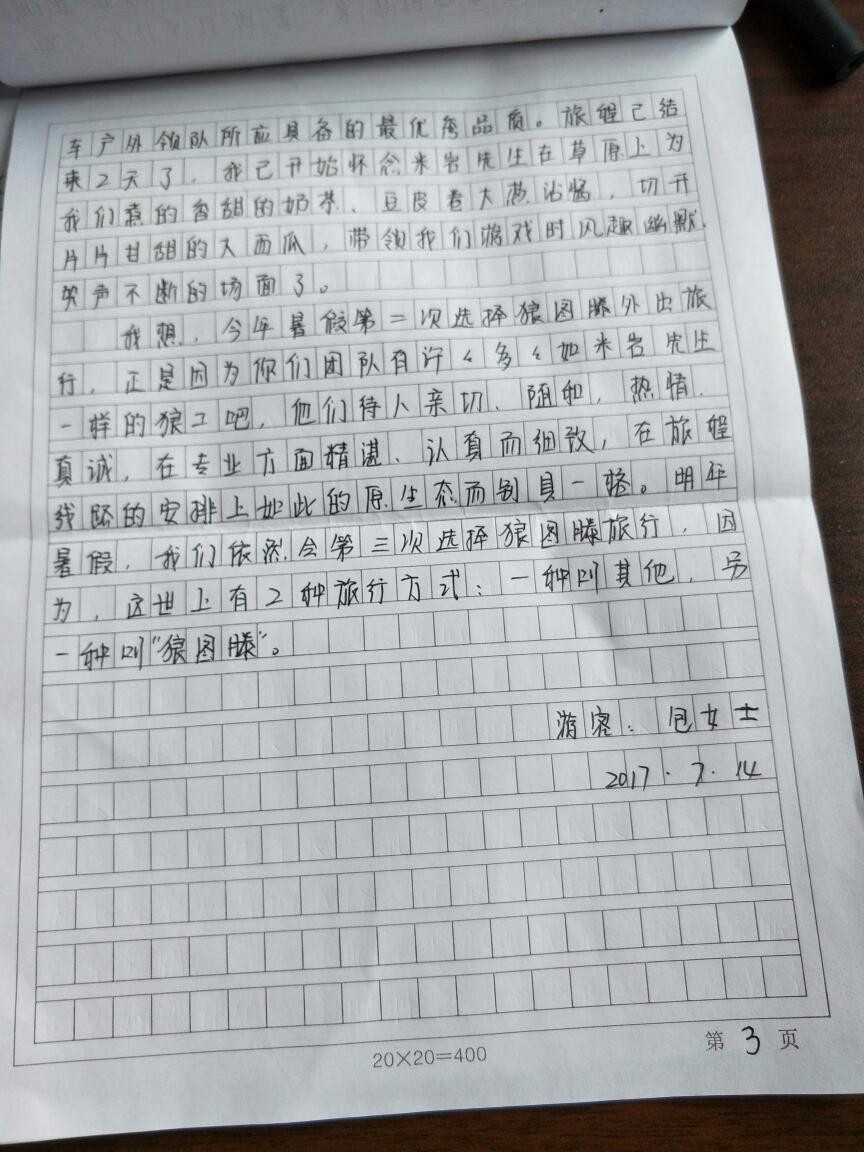 车户外领队所应具备的最优秀品质。旅程已结
束2天了，我已开始怀念米岩先生在草原上为
我们煮的香甜的奶茶、豆皮卷大葱沾酱，切开
片片甘甜的大西瓜，带领我们游戏时风趣幽默，
笑声不断的场面了。
我想，今年暑假第二次选择狼图腾外出旅
行，正是因为你们团队有许许多多如米岩先生
一样的狼工吧，他们待人亲切、随和，热情、
真诚，在专业方面精湛、认真而细致，在旅程
线路的安排上如此的原生态而别具一格。明年
暑假，我们依然会第三次选择狼图腾旅行，因
为，这世上有2种旅行方式：一种叫其他，另
一种叫“狼图腾”。
游客：包女士
2017.7.14
20×20=400
第3页